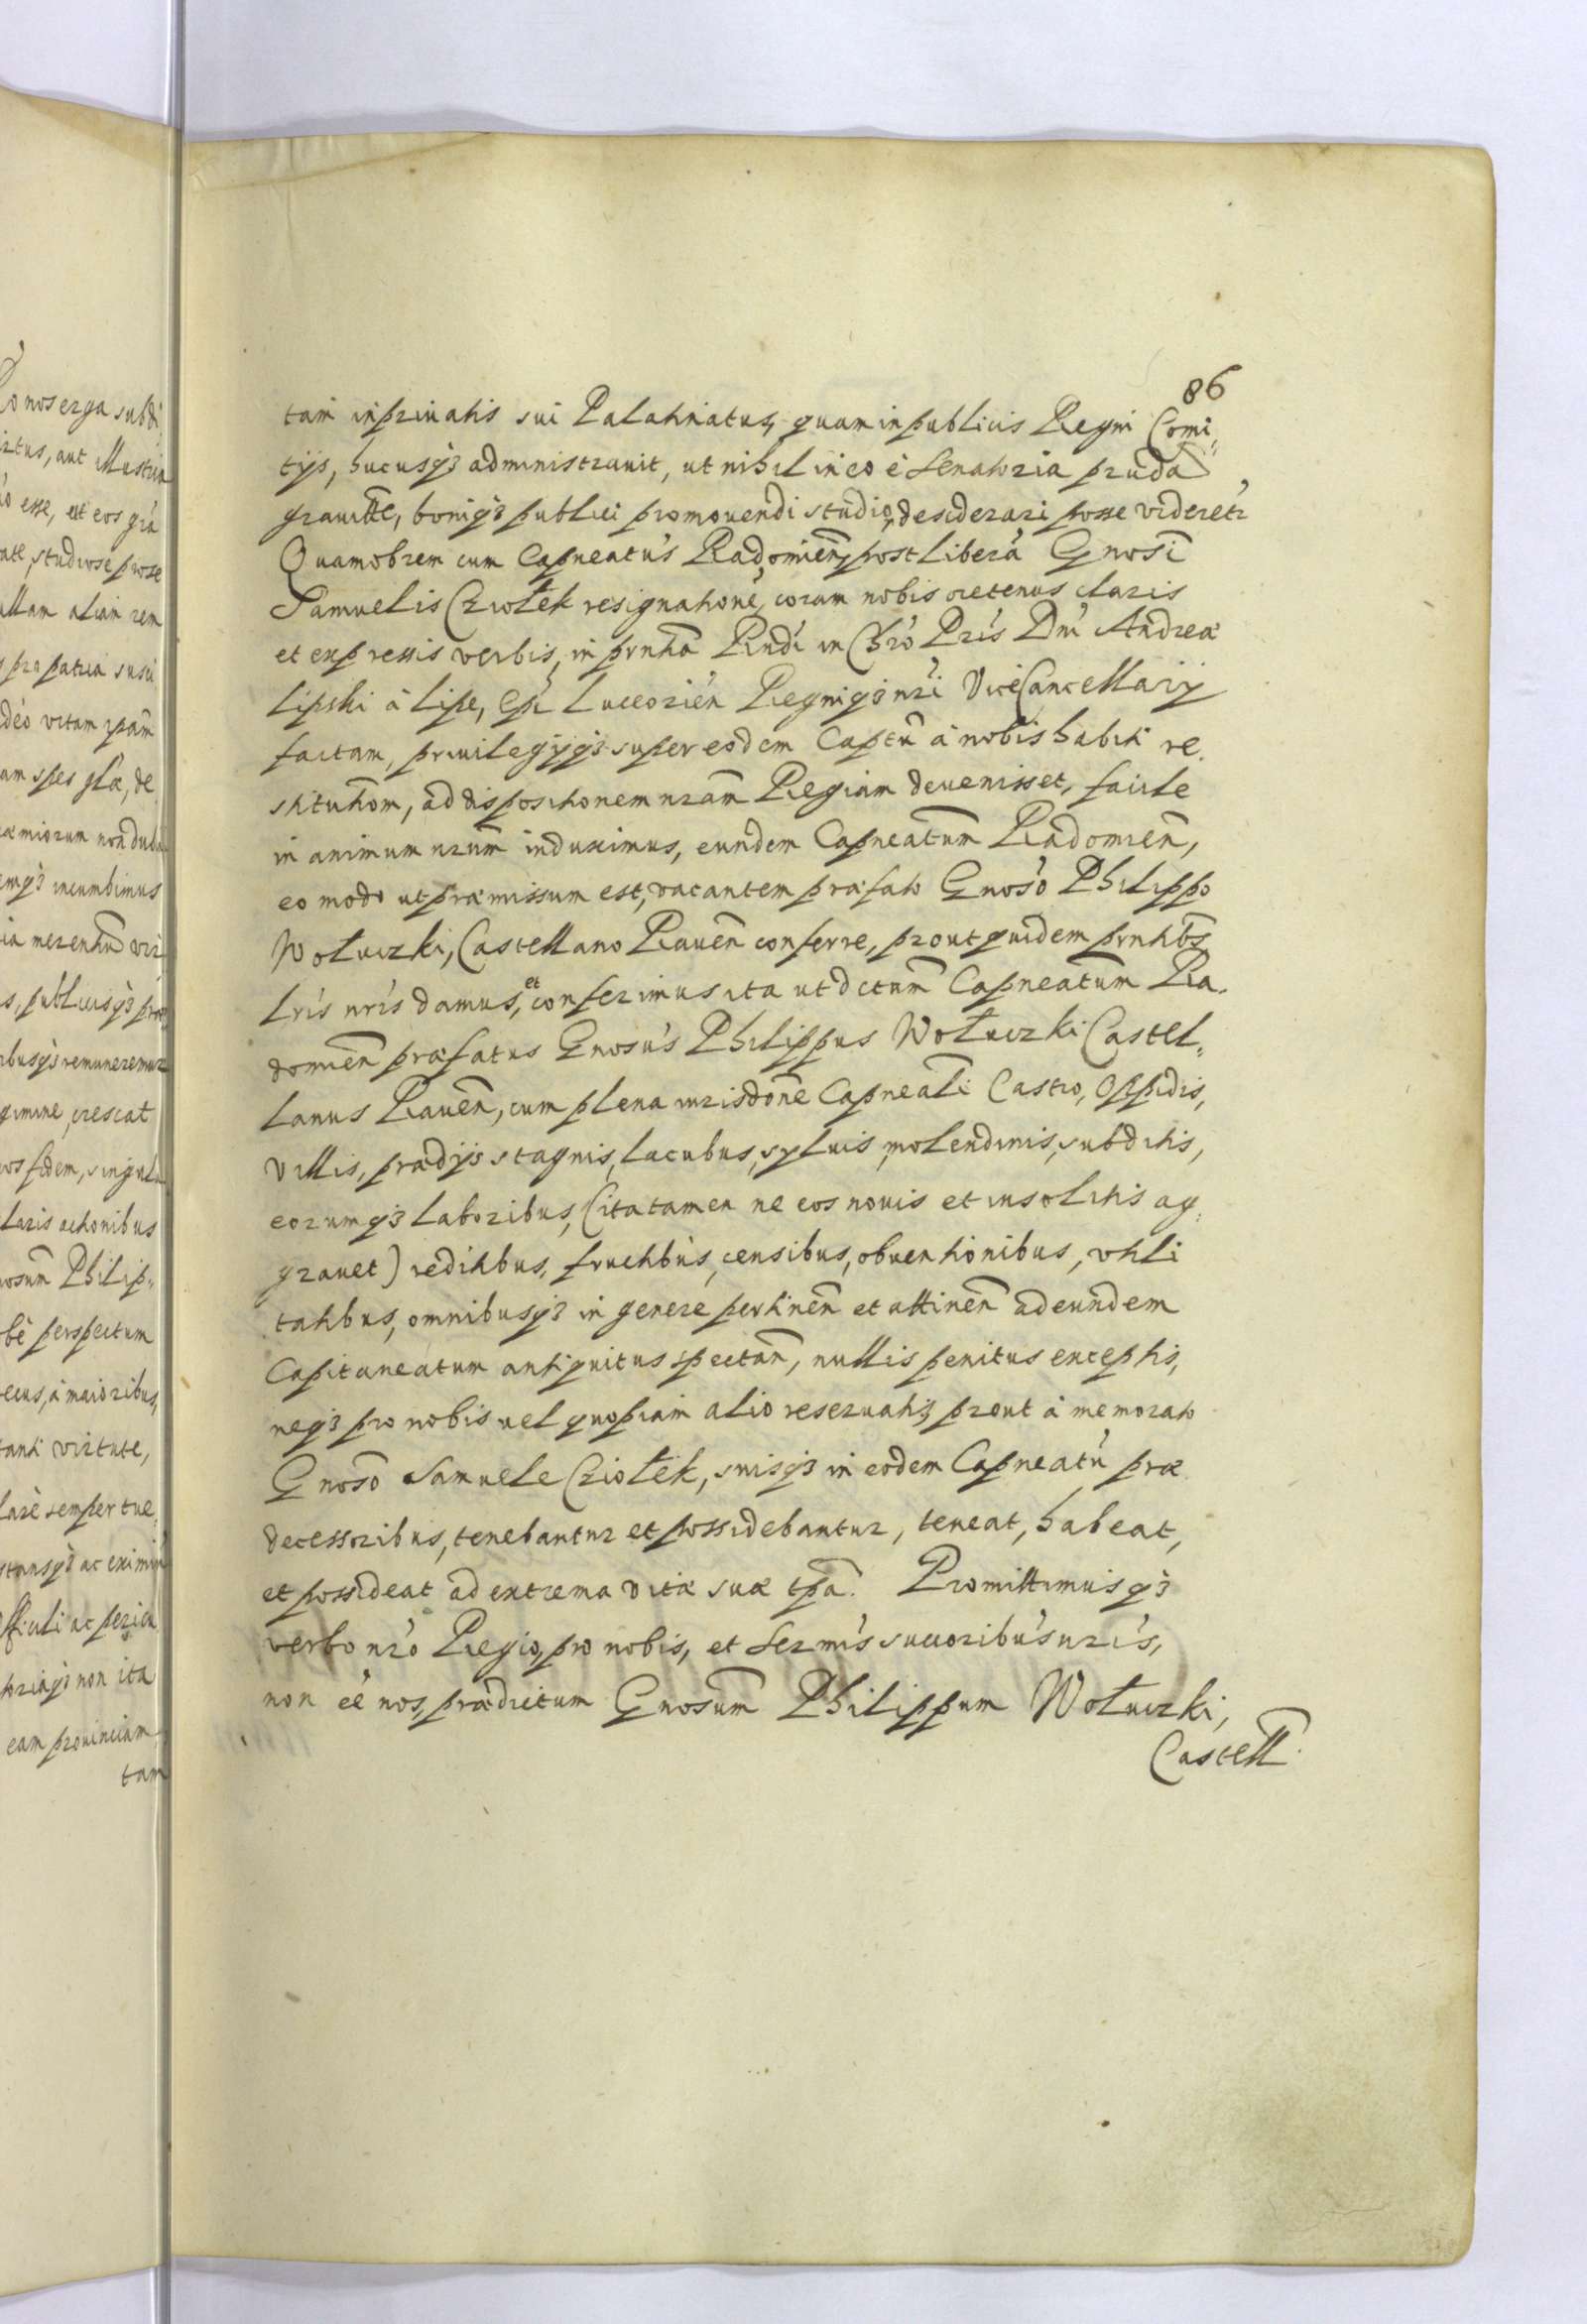 86
tam in priuatis sui Palatinatus, quam in publicis Regni Comi„
tijs, hucusq3 administrauit, ut nihil in eo è Senatoria prũda
grauitãte, boniq3 publici promouendi studio, desiderari posse videret̃r
Quamobrem cum Capneatus Radomień, post liberã Gnosi
Samuelis Cziołek resignationẽ, coram nobis oretenus claris
et expressis verbis, in prñtia Rñdi in Chrõ Pris Dñi Andreæ
Lipski à Lipe, Epĩ Luceorień Regniq3 nr̃i ViceCancellarij
factam, priuilegijq3 super eodem Captũ à nobis habiti re„
stitutiõm, ad dispositionem nrãm Regiam deuenisset, facile
in animum nrũm induximus, eundem Capneatũm Radomień,
eo modo ut præmissum est, vacantem præfato Gnosõ Philippo
Wołuczki, Castellano Raueń conferre, prout quidem prñtibs
Lris nris damus, et conferimus ita ut dctum Capneatũm Ra„
domień præfatus Gnosus Philippus Wołuczki Castel„
lanus Raueń, cum plena iurisdõne Capneali Castro, Oppidis,
Villis, prædijs stagnis, lacubus, syluis, molendinis, subditis,
eorumq3 laboribus, (ita tamen ne eos nouis et insolitis ag„
grauet) reditibus, fructibus, censibus, obuentionibus, utili
tatibus, omnibusq3 in genere pertineñ et attineñ ad eundem
Capitaneatum antiquitus spectañ, nullis penitus exceptis,
neq3 pro nobis uel quopiam alio reseruatis, prout à memorato
Gnosõ Samuele Cziołek, suisq3 in eodem Capneatũ præ
decessoribus, tenebantur et possidebantur, teneat, habeat,
et possideat ad extrema vitæ suæ tpã. Promittimusq3
verbo nrõ Regio, pro nobis, et Sermis succoribus nris,
non eẽ nos, prædictum Gnosũm Philippum Wołuczki,
Castell̃